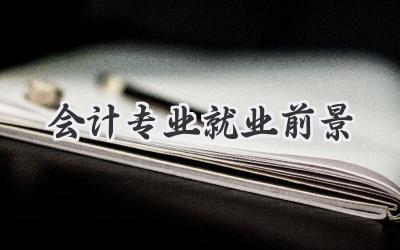 会计专业就业前景